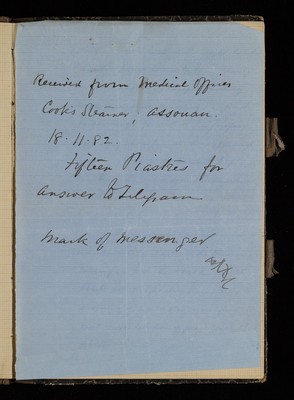 Received from Medical Officer
Cook's Steamer, Assouan
18.11.82.
Fifteen Piastres for
answer to Telegram
Mark of Messenger